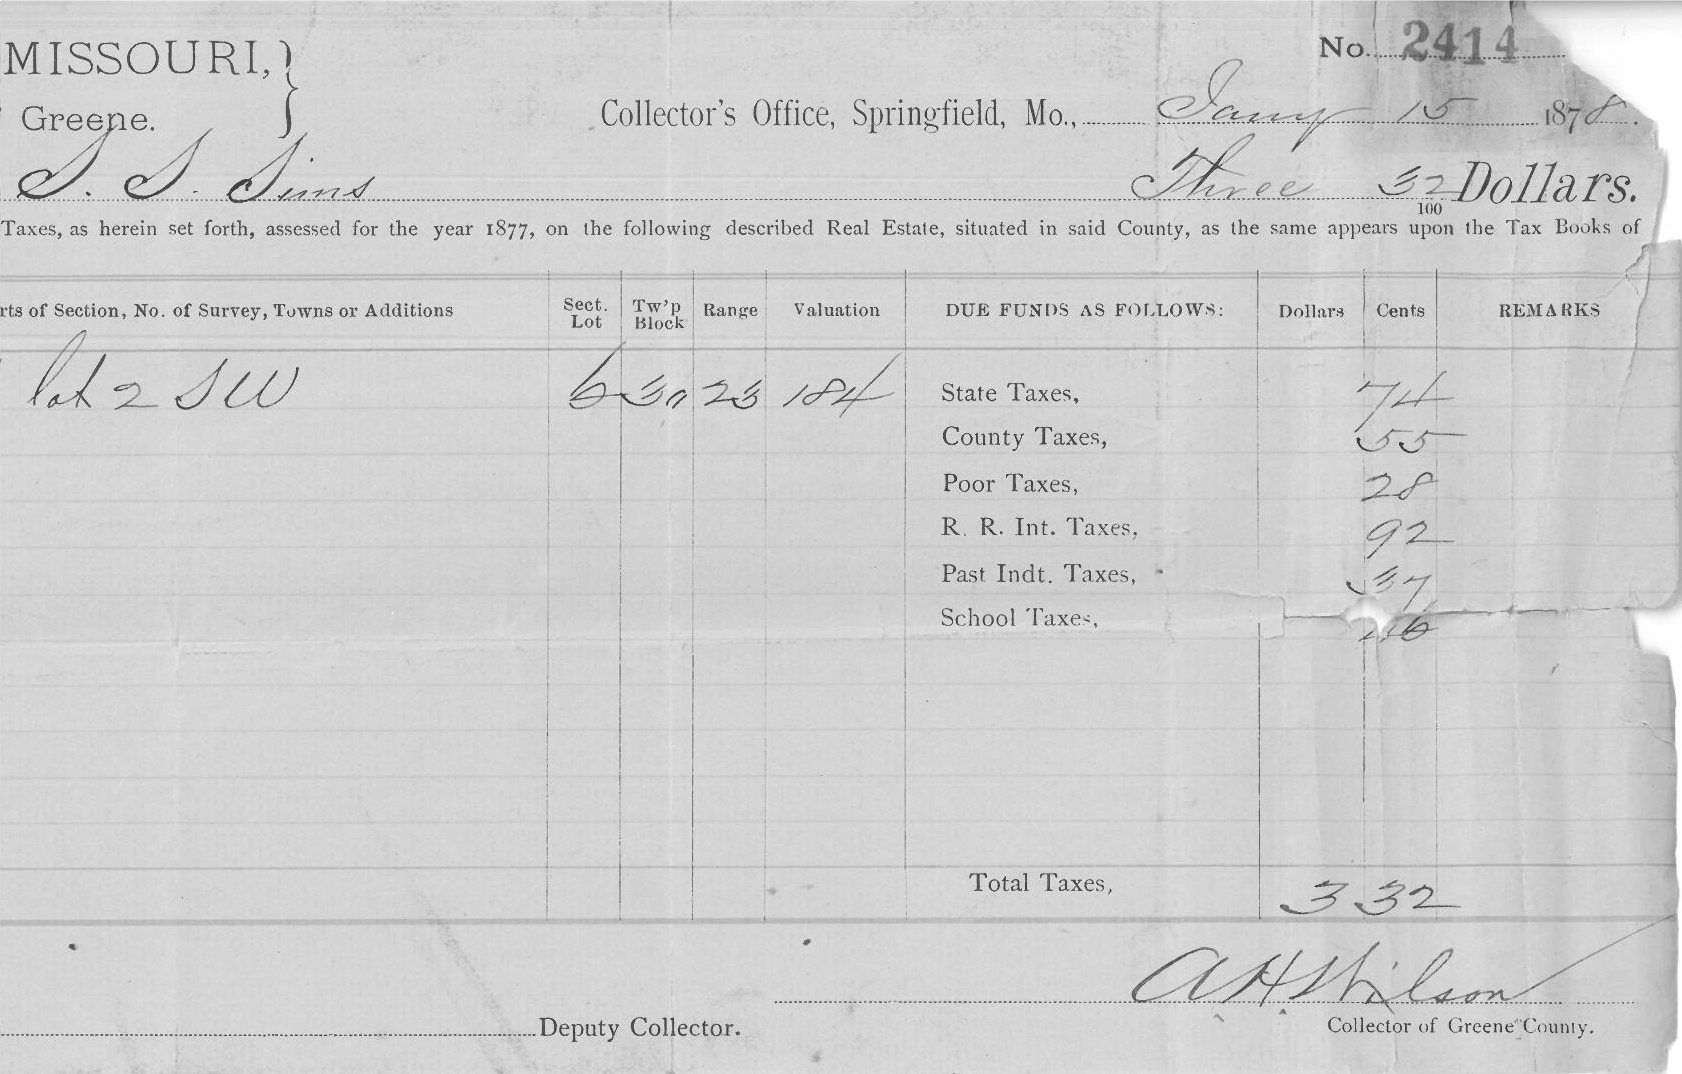 MISSOURI,
No. 2414
Greene.
Collector's Office, Springfield, Mo., Jany 15 1878.
S. S. Sims Three 32/100 Dollars.
Taxes, as herein set forth, assessed for the year 1877, on the following described Real Estate, situated in said County, as the same appears upon the Tax Books of
rts of Section, No. of Survey, Towns or Additions Sect. Lot Tw'p Block Range Valuation DUE FUNDS AS FOLLOWS: Dollars Cents REMARKS
lot 2 SW 6 30 23 184 State Taxes, 74
County Taxes, 55
Poor Taxes, 28
R. R. Int. Taxes, 92
Past Indt. Taxes, 37
School Taxes,
Total Taxes, 3 32
A H Wilson
Deputy Collector.
Collector of Greene County.